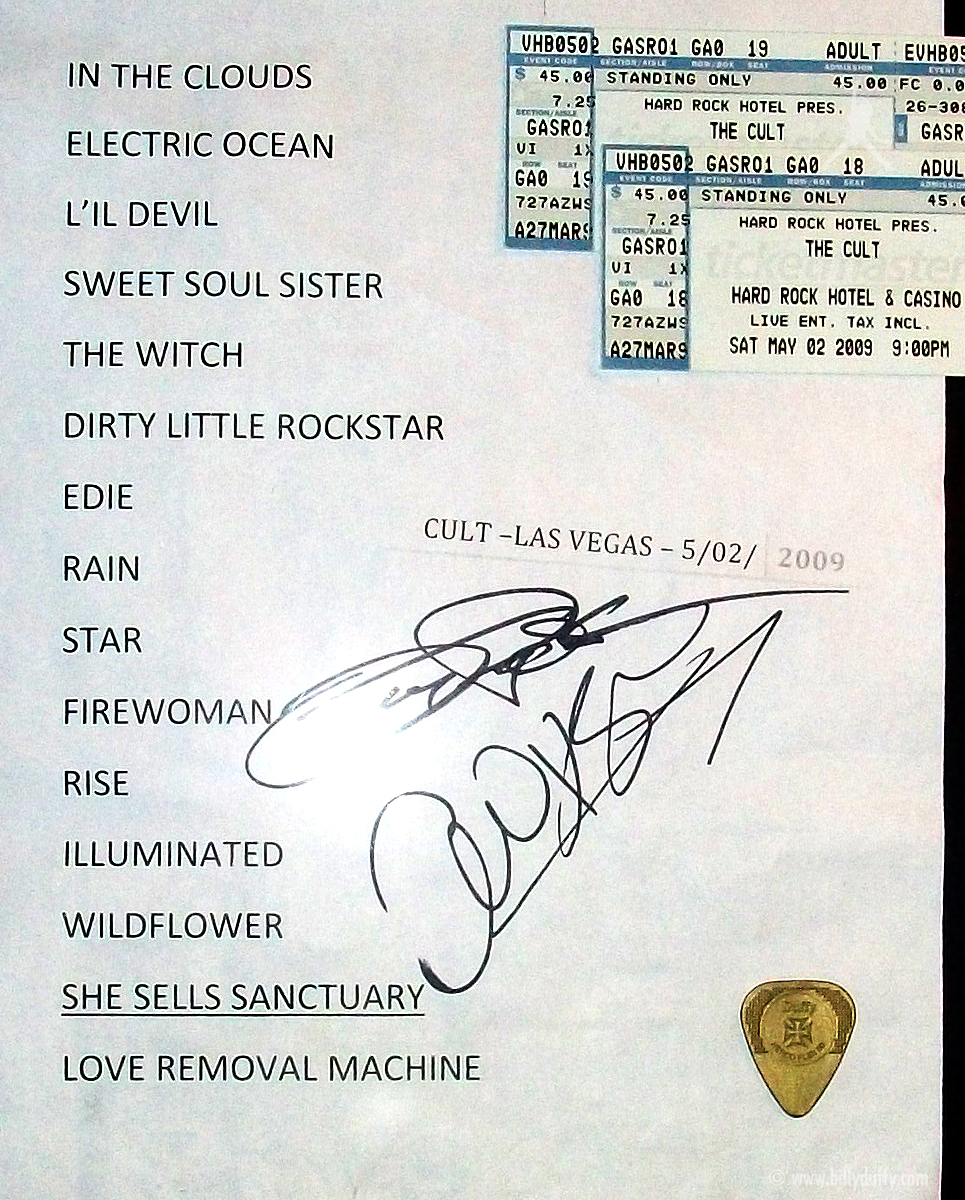 IN THE CLOUDS
ELECTRIC OCEAN
L'IL DEVIL
SWEET SOUL SISTER
THE WITCH
DIRTY LITTLE ROCKSTAR
EDIE
RAIN
STAR
FIREWOMAN
RISE
ILLUMINATED
WILDFLOWER
SHE SELLS SANCTUARY
LOVE REMOVAL MACHINE
VHB0502 GASRO1 GA0 19 ADULT EVHB05
EVENT CODE SECTION/AISLE ROW/BOX SEAT ADMISSION EVENT C
$ 45.00 STANDING ONLY 45.00 FC 0.0
7.25 HARD ROCK HOTEL PRES. 26-308
SECTION/AISLE
GASRO1 THE CULT GASR
VI 1X
ROW SEAT
GA0 19
727AZWS
A27MARS
VHB0502 GASRO1 GA0 18 ADUL
EVENT CODE SECTION/AISLE ROW/BOX SEAT ADMISSION
$ 45.00 STANDING ONLY 45.0
7.25 HARD ROCK HOTEL PRES.
SECTION/AISLE
GASRO1 THE CULT
ticketmaster
VI 1X
ROW SEAT
GA0 18 HARD ROCK HOTEL & CASINO
727AZWS LIVE ENT. TAX INCL.
A27MARS SAT MAY 02 2009 9:00PM
CULT –LAS VEGAS – 5/02/ 2009
© www.billyduffy.com